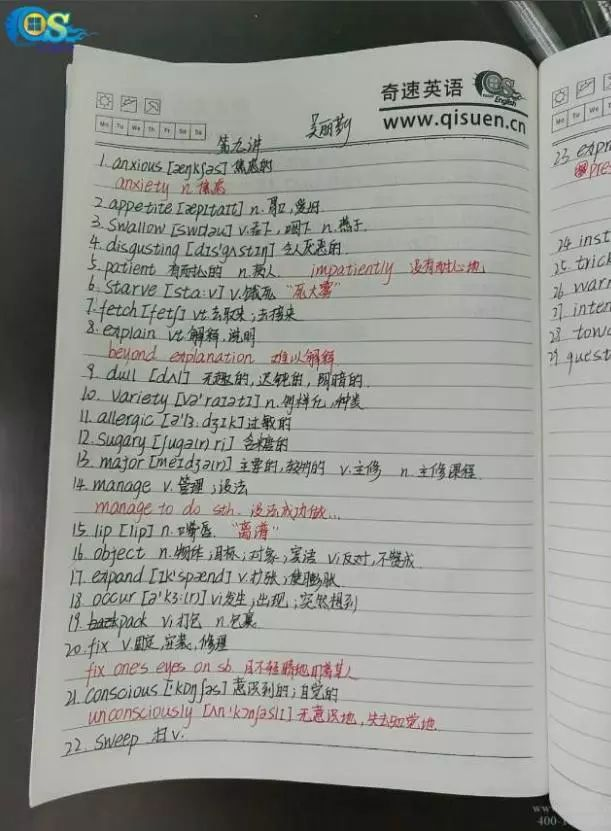 QS
奇速英语
QS English
www.qisuen.cn
Mo Tu We Th Fr Sa Su
第九讲
1. anxious [æŋkʃəs] 焦虑的
anxiety n. 焦虑
2. appetite [æpɪtaɪt] n. 胃口,爱好
3. Swallow [swɒləu] v.吞下,咽下 n. 燕子
4. disgusting [dɪs'gʌstɪŋ] 令人厌恶的
5. patient 有耐心的 n.病人 impatiently 没有耐心地
6. Starve [sta:v] v.饿死 "死大雾"
7. fetch [fetʃ] vt.去取来;去接来
8. explain vt.解释,说明
beyond explanation 难以解释
9. dull [dʌl] 无趣的,迟钝的,阴暗的
10. variety [və'raɪətɪ] n.多样化,种类
11. allergic [ə'lɜ.dʒɪk] 过敏的
12. sugary [ʃugə(r) ri] 含糖的
13. major [meɪdʒə(r)] 主要的,较多的 v.主修 n.主修课程
14. manage v.管理;设法
manage to do sth. 设法成功做...
15. lip [lɪp] n.嘴唇 "离谱"
16. object n.物体;目标;对象;宾语 vi反对,不赞成
17. expand [ɪk'spænd] v.扩张;使膨胀
18. occur [ə'kɜ:(r)] vi发生;出现;突然想到
19. pack vi打包 n.包裹
20. fix v.固定,安装,修理
fix one's eyes on sb. 目不转睛地盯着某人
21. Conscious ['kɒnʃəs] 意识到的;自觉的
unconsciously [ʌn'kɒnʃəslɪ] 无意识地,失去知觉地
22. sweep 扫 v.
23 expr
pres
24 inst
25. trick
26 warn
27 inter
28 towa
29 quest
www.
400-1